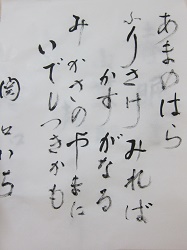 あまのはら
ふりさけみれば
かすがなる
みかさのやまに
いでしつきかも
関口